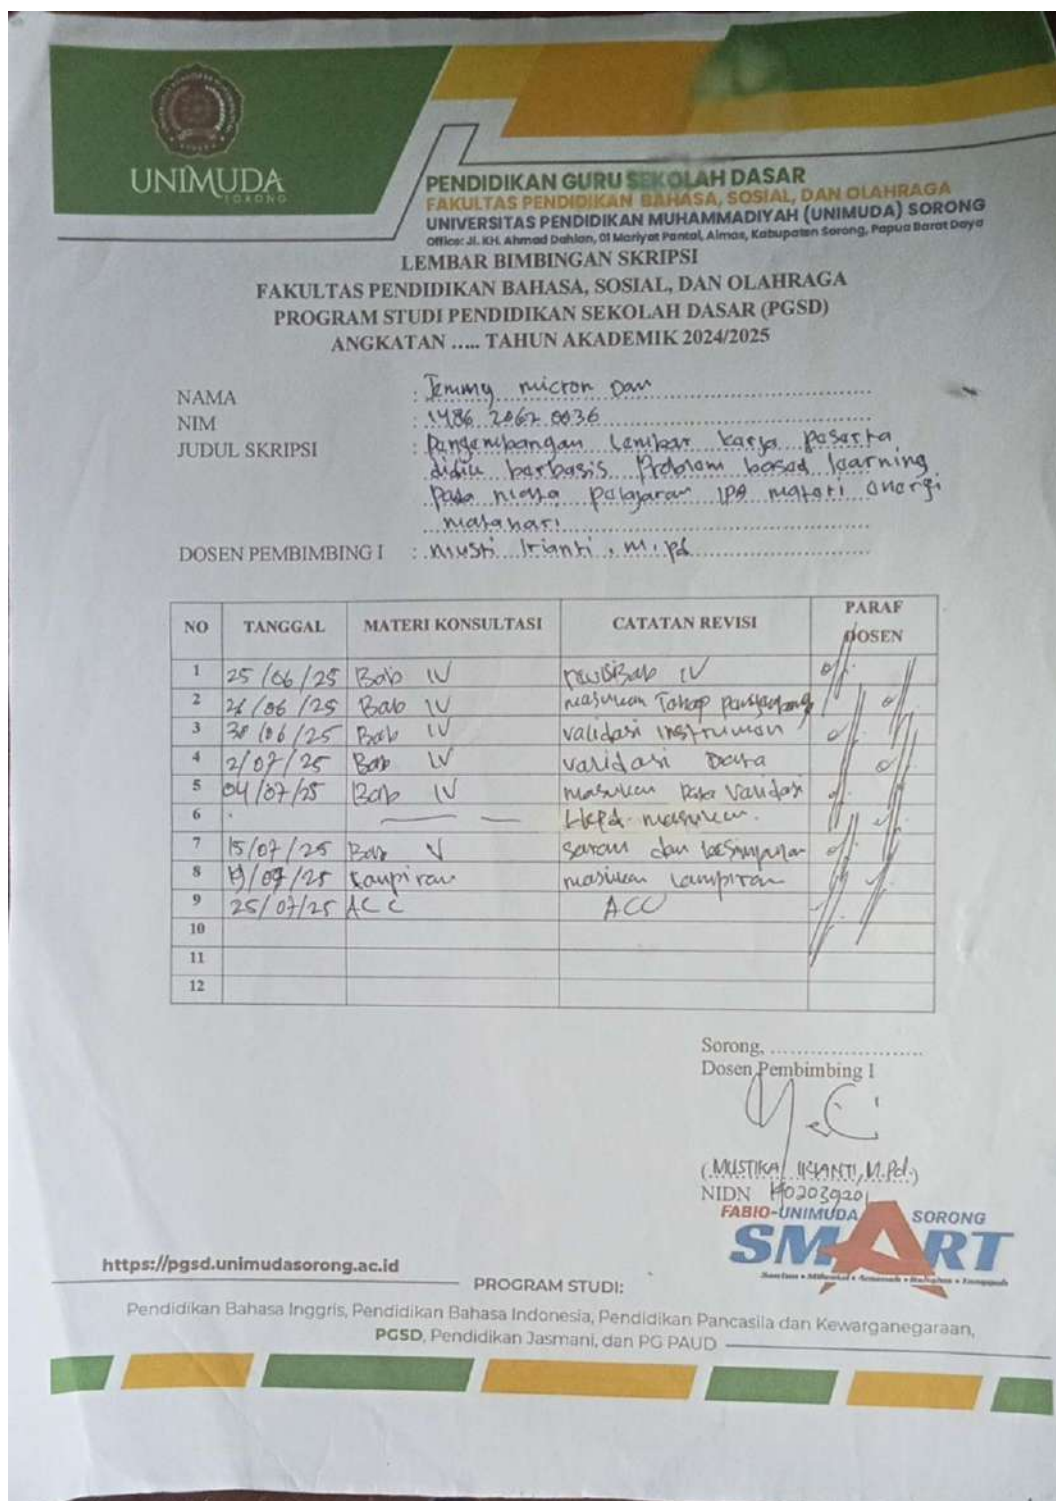 UNIMUDA
SORONG
PENDIDIKAN GURU SEKOLAH DASAR
FAKULTAS PENDIDIKAN BAHASA, SOSIAL, DAN OLAHRAGA
UNIVERSITAS PENDIDIKAN MUHAMMADIYAH (UNIMUDA) SORONG
Office: Jl. KH. Ahmad Dahlan, 01 Mariyat Pantai, Aimas, Kabupaten Sorong, Papua Barat Daya
LEMBAR BIMBINGAN SKRIPSI
FAKULTAS PENDIDIKAN BAHASA, SOSIAL, DAN OLAHRAGA
PROGRAM STUDI PENDIDIKAN SEKOLAH DASAR (PGSD)
ANGKATAN ..... TAHUN AKADEMIK 2024/2025
NAMA : Jemmy micron
NIM : 1486 2062 0036
JUDUL SKRIPSI : Pengembangan Lembar kerja peserta
didik berbasis Problem based learning
pada mata pelajaran IPA materi energi
matahari
DOSEN PEMBIMBING I : Irianti, M.pd
NO TANGGAL MATERI KONSULTASI CATATAN REVISI PARAF DOSEN
1 25/06/25 Bab IV revisi Bab IV
2 /06/25 Bab IV masukan Tahap
3 30/06/25 Bab IV validasi instrumen
4 2/07/25 Bab IV validasi Data
5 04/07/25 Bab IV masukan Validasi
6 masukan.
7 15/07/25 Bab V saran dan kesimpulan
8 Lampiran masukan Lampiran
9 25/07/25 ACC ACC
10
11
12
Sorong, ........................
Dosen Pembimbing I
(MUSTIKA IRIANTI, M.Pd.)
NIDN
FABIO-UNIMUDA SORONG
SMART
https://pgsd.unimudasorong.ac.id
PROGRAM STUDI:
Pendidikan Bahasa Inggris, Pendidikan Bahasa Indonesia, Pendidikan Pancasila dan Kewarganegaraan,
PGSD, Pendidikan Jasmani, dan PG PAUD